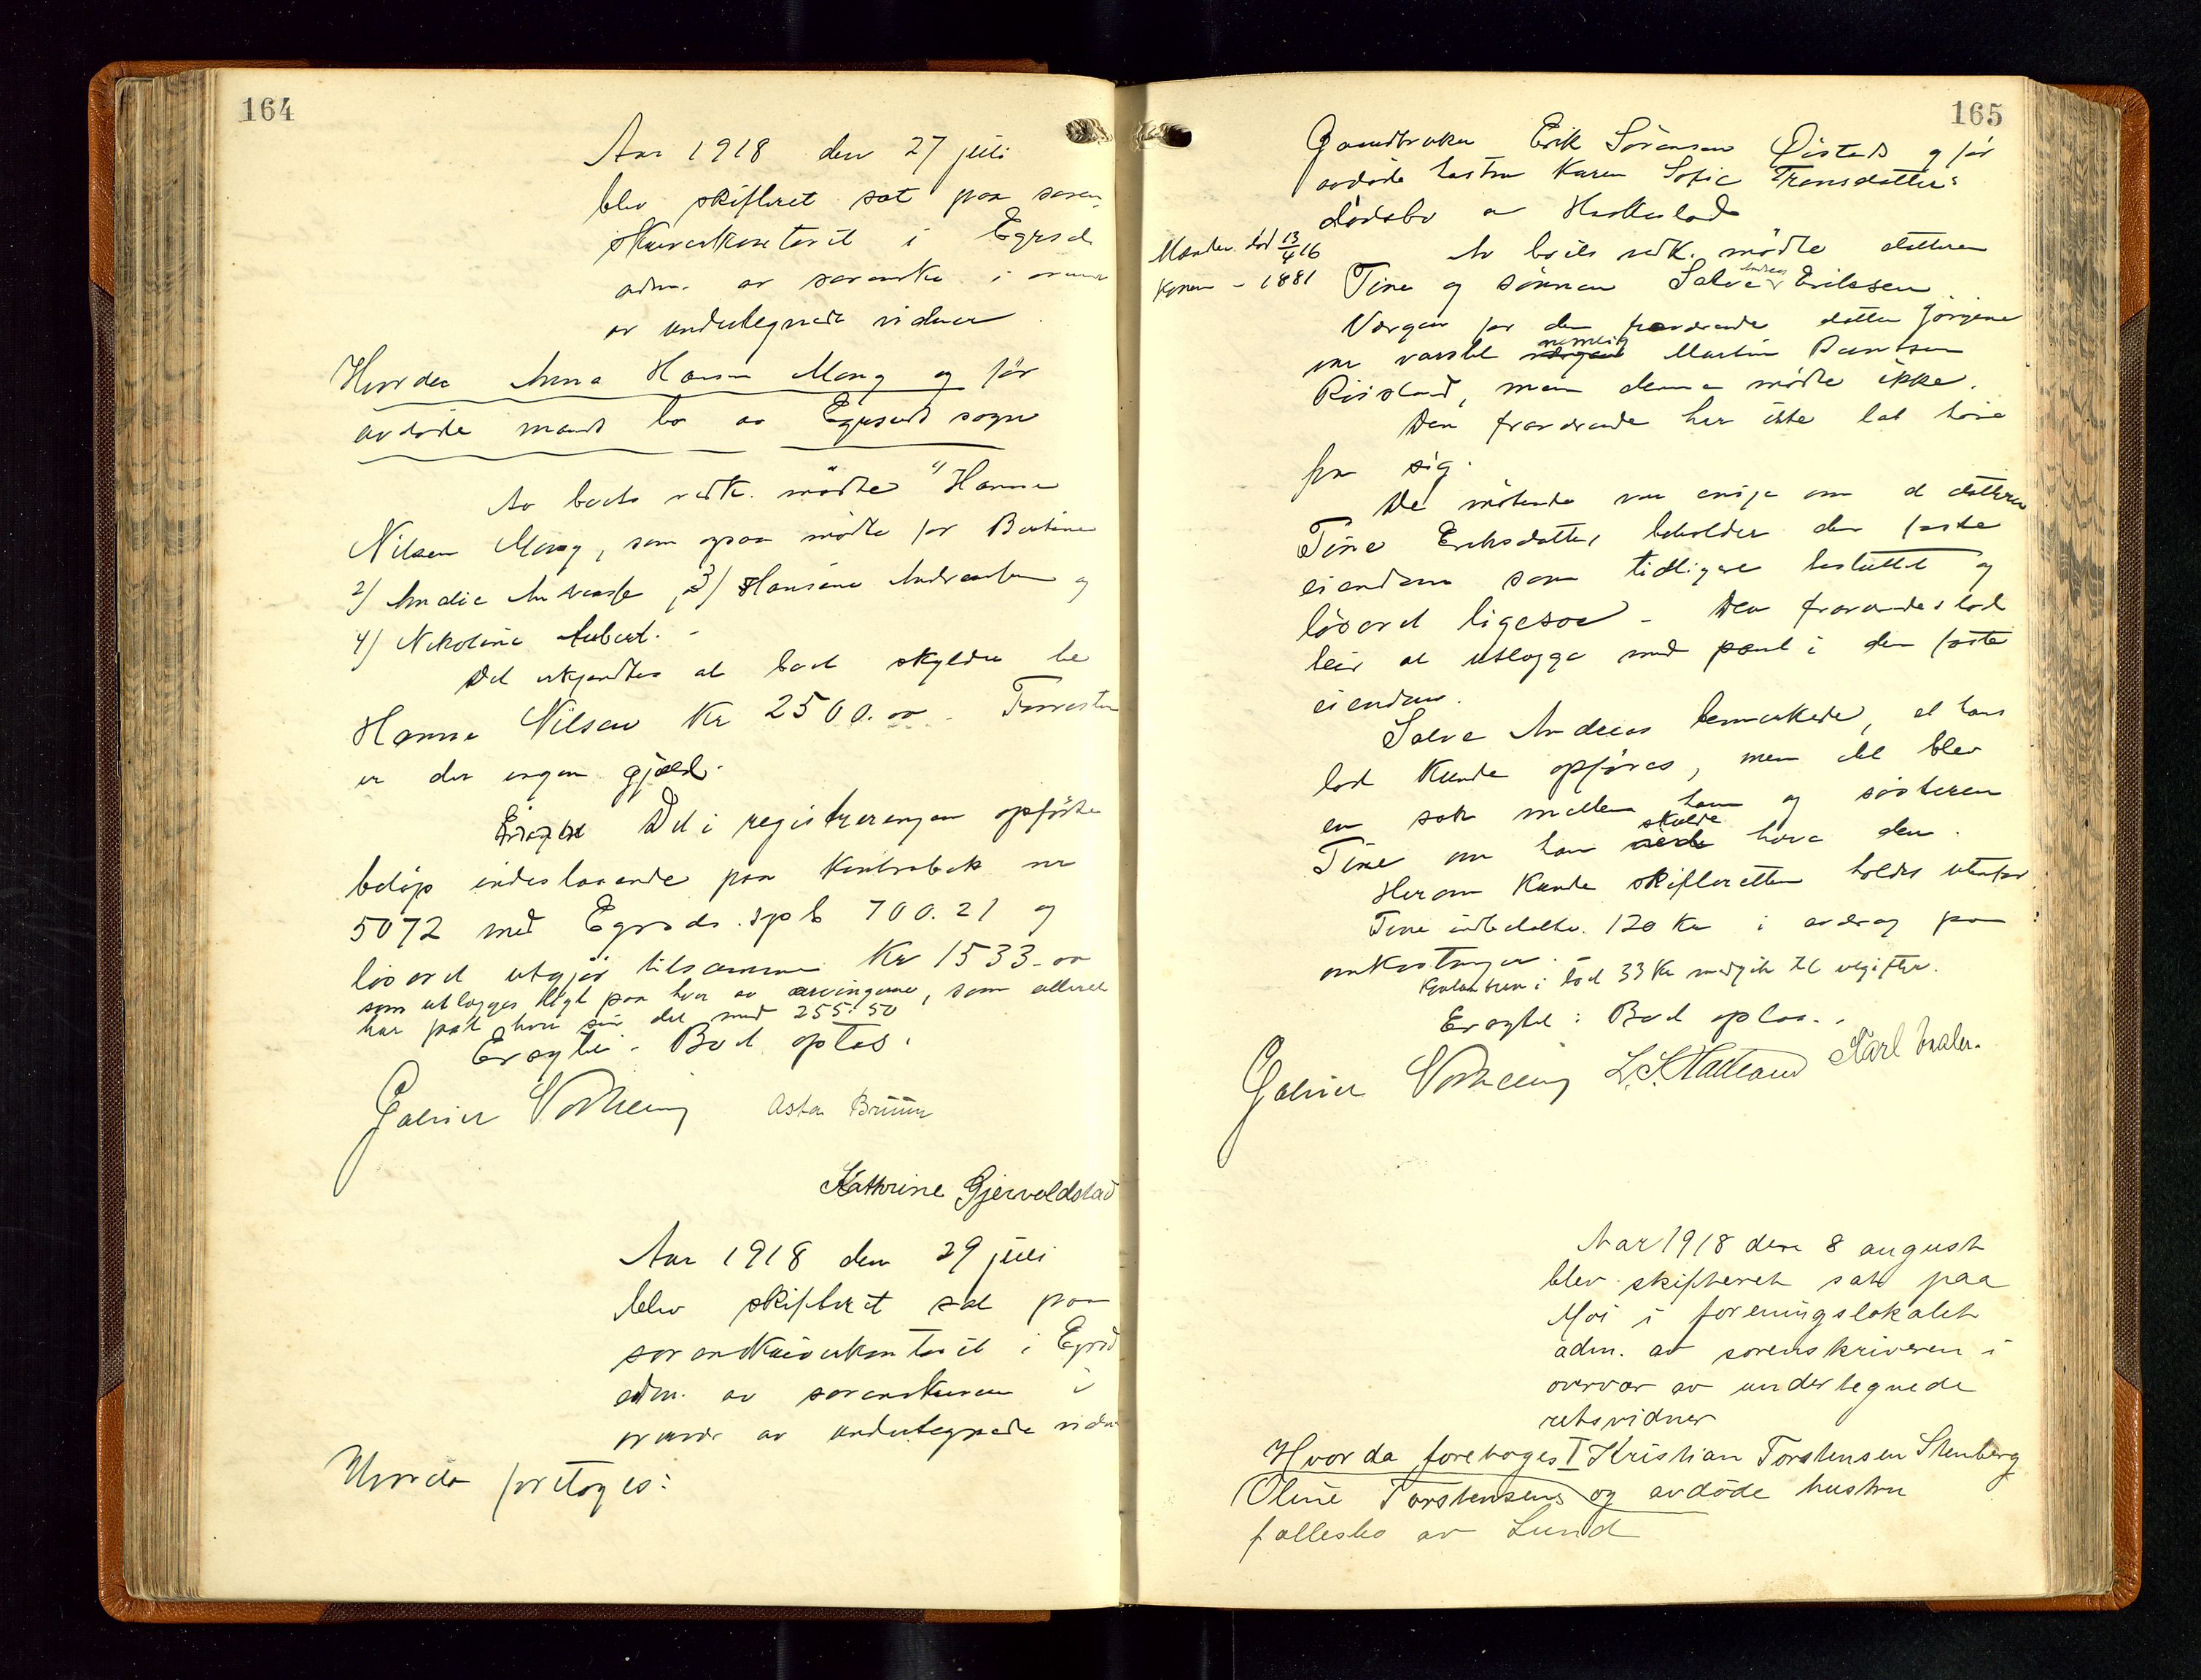 164
Aar 1918 den 27 juli
blev skifteret sat paa soren-
skriverkontoret i Egersd
adm. av sorenskr. i overvær
av undertegnede vidner.
Hvorda Anna Hansen Mong og før
avdøde mands bo av Egersund sogn
Av boets vedk. mødte 1/ Hanna
Nilsen Mong, som ogsaa mødte for Bertine
2/ Andie Andreassen, 3/ Hansine Andreassen og
4/ Nikoline Aubert. -
Det erkjendtes at boet skylder
Hanna Nilsen Kr 2500.00. Forresten
er der ingen gjæld.
Eragtet Det i registreringen opførte
beløp indestaaende paa kontrabok nr
5072 med Egersds. spb 700.21 og
løsøret utgjør tilsammen Kr 1533.00
som utlægges likt paa hver av arvingerne, som allerede
har faat hver sin del med 255.50
Eragtet. Boet optas.
Gabriel Asta Bruun
Kathrine Gjerveldstad
Aar 1918 den 29 juli
blev skifteret sat paa
sorenskriverkontoret i Egersd
adm. av sorenskriveren i
overvær av undertegnede vidner
Hvorda foretoges:
165
Gaardbruker Erik Sørensen Øistad og før
avdøde hustru Karen Sofie Transdatters
dødsbo av Heskestad
Manden død 13/4 16
Konen - 1881
Av boets vedk. mødte datteren
Tine og sønnen Salve Andreas Eriksen.
Værgen for den fraværende datter Jørgine
var varslet nemlig Martin
Riisland, men denne mødte ikke.
Den fraværende har ikke lat høre
fra sig.
De møtende var enige om at datteren
Tine Eriksdatter beholder den faste
eiendom som tidligere besluttet og
løsøret ligesaa - Den fraværendes lod
blir at utlægge med pant i den faste
eiendom.
Salve Andreas bemerkede, at hans
lod kunde opføres, men det blev
en sak mellem ham og søsteren
Tine om han skulde have den.
Herom kunde skifteretten holdes utenfor
Tine indbetalte 120 Kr i avdrag paa
omkostninger.
i bod 33 Kr medgik til utgifter.
Eragtet: Boet optas.
Gabriel L. S. Hatland Karl
Aar 1918 den 8 august
blev skifteret sat paa
Moi i foreningslokalet
adm. av sorenskriveren i
overvær av undertegnede
retsvidner
Hvorda foretoges I Kristian Torstensen Stenberg
Oline Torstensens og avdøde hustru
fællesbo av Lund